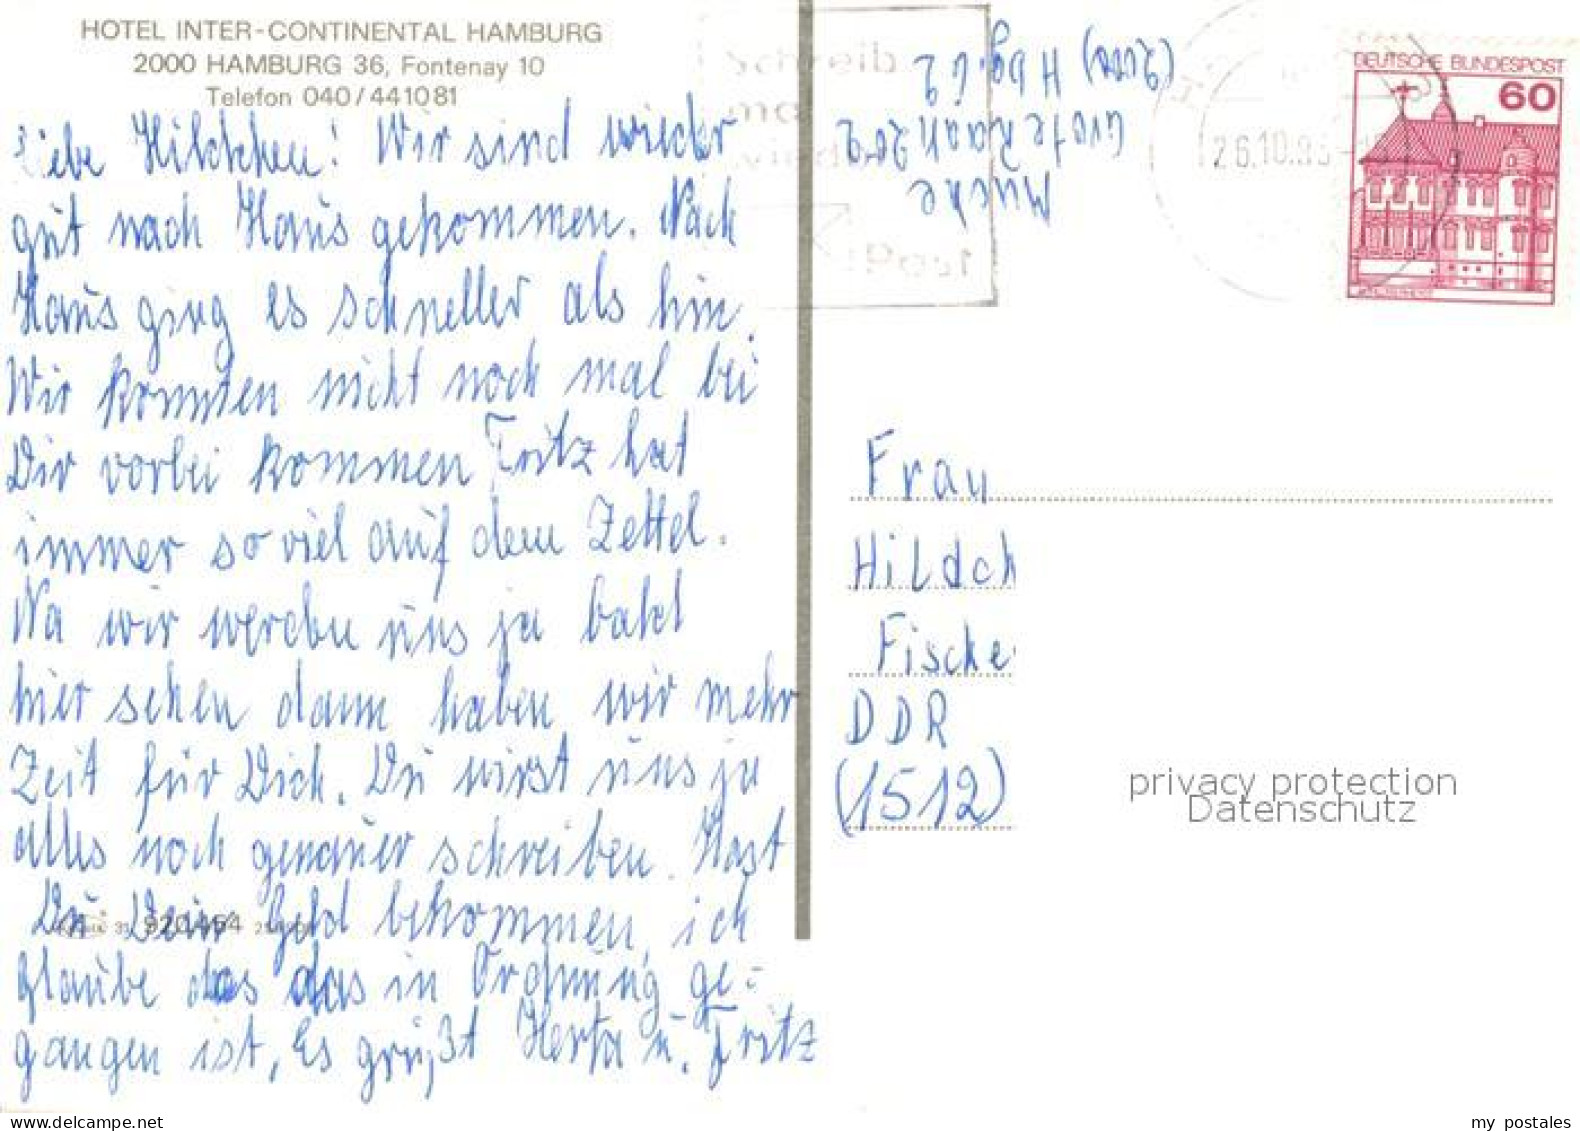 HOTEL INTER-CONTINENTAL HAMBURG
2000 HAMBURG 36, Fontenay 10
Telefon 040/441081
Liebe Hildchen! Wir sind wieder
gut nach Haus gekommen. Nach
Haus ging es schneller als hin.
Wir konnten nicht noch mal bei
Dir vorbei kommen Fritz hat
immer so viel auf dem Zettel.
Na wir werden uns ja bald
hier sehen dann haben wir mehr
Zeit für Dich. Du wirst uns ja
alles noch genauer schreiben. Hast
Du Dein Geld bekommen, ich
glaube das das in Ordnung ge-
gangen ist, Es grüßt Herta u. Fritz
(2000) Hbg. 62
Mücke
26.10.8
DEUTSCHE BUNDESPOST
60
Frau
Hildch
Fische
DDR
(1512)
privacy protection
Datenschutz
my postales